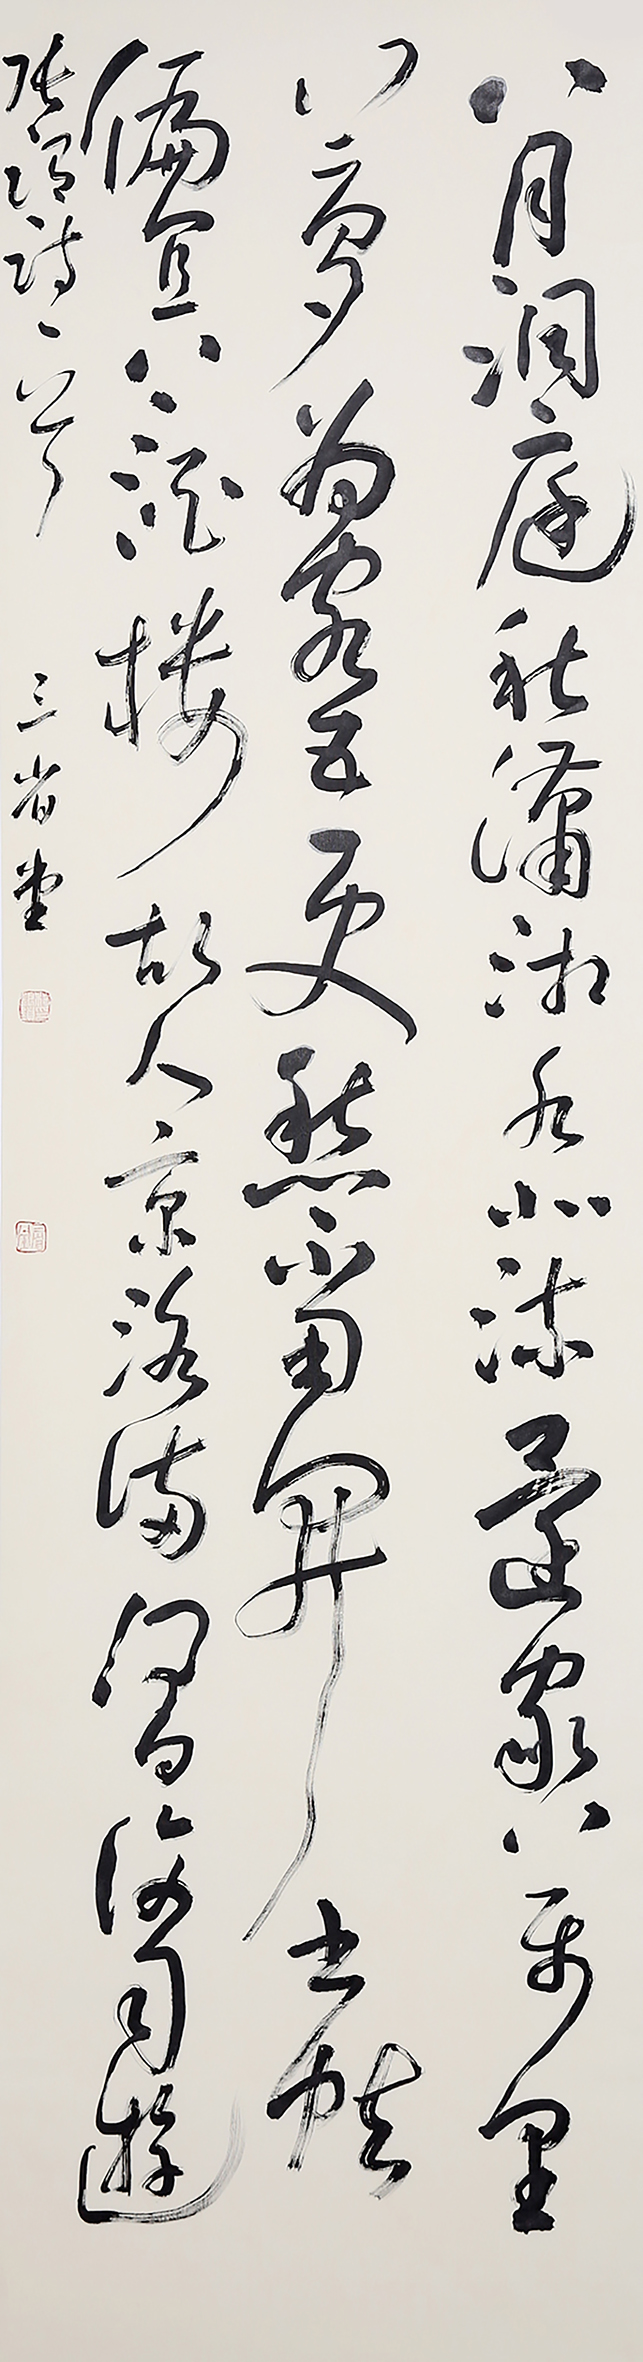 八月洞庭秋瀟湘水北流還家萬里
夢為客五更愁不用開書帙
偏宜上酒樓故人京洛滿何日復同遊
張謂詩一首 三省堂